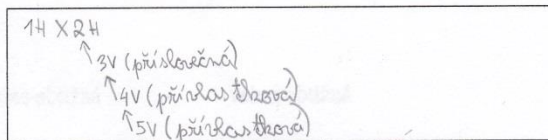 1H X 2H
↑3V (příslovečná)
↑4V (přívlastková)
↑5V (přívlastková)